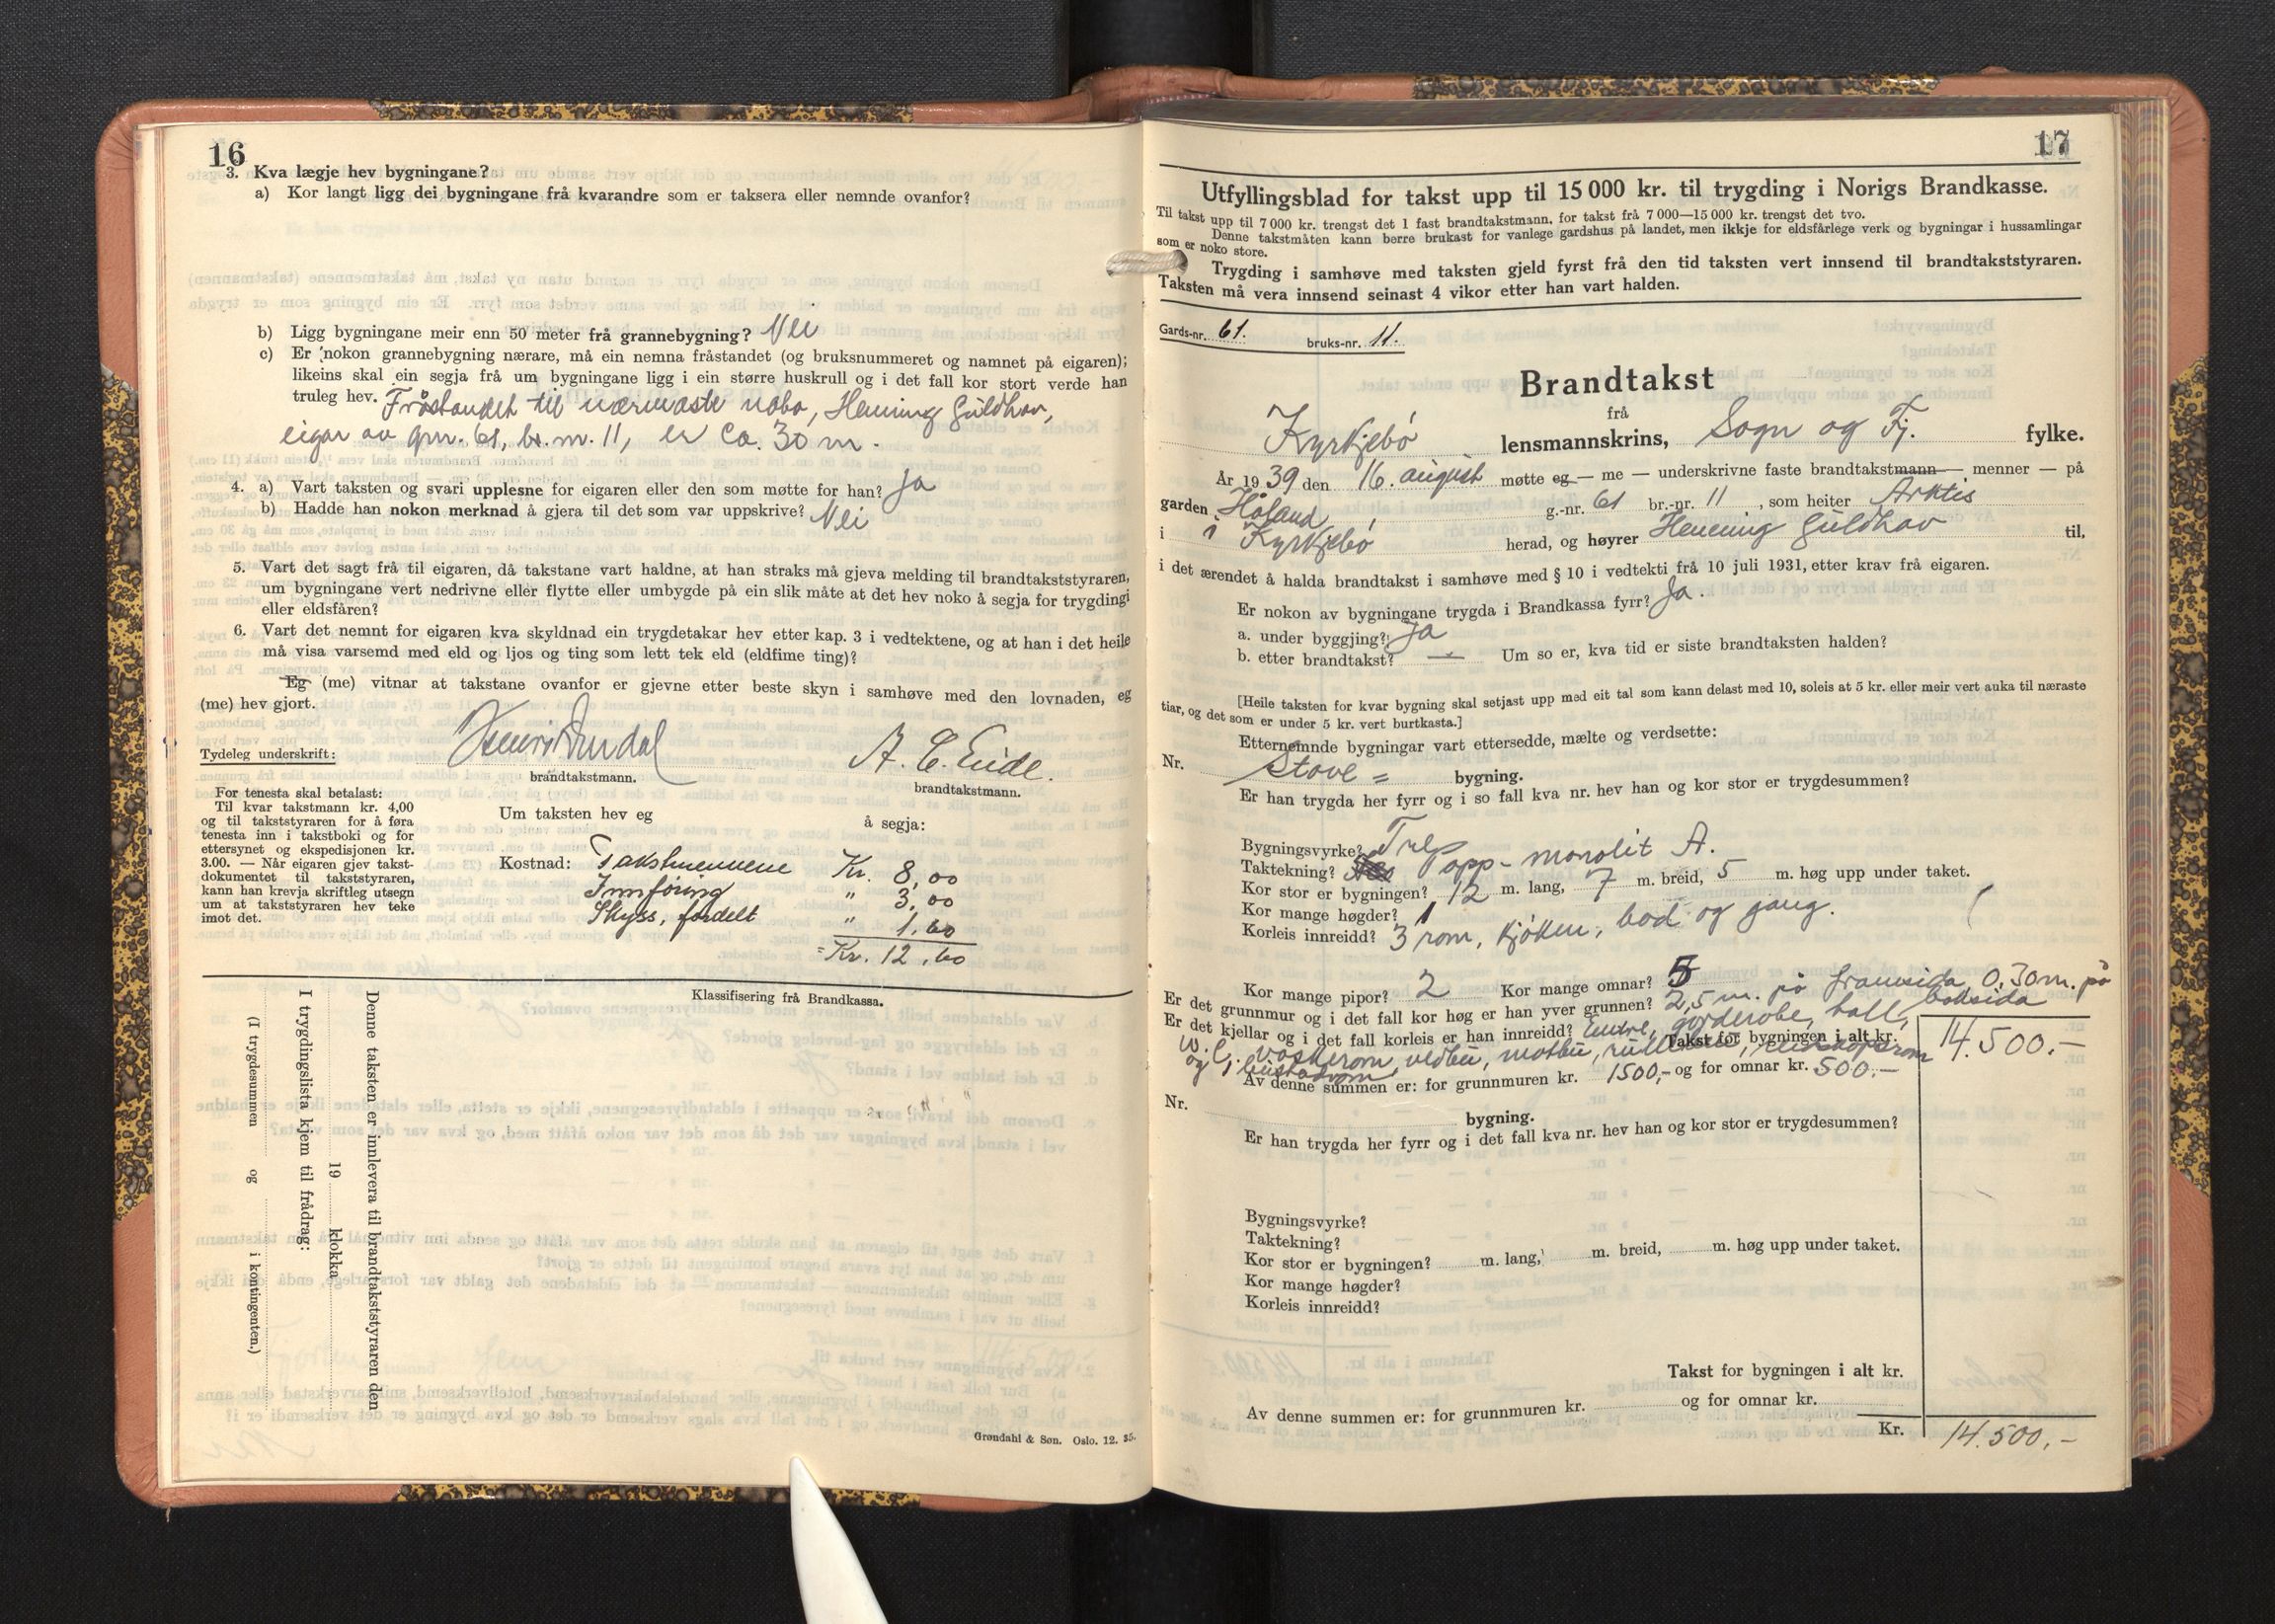 16
3. Kva lægje hev bygningane?
a) Kor langt ligg dei bygningane frå kvarandre som er taksera eller nemnde ovanfor?
b) Ligg bygningane meir enn 50 meter frå grannebygning? Nei
c) Er nokon grannebygning nærare, må ein nemna fråstandet (og bruksnummeret og namnet på eigaren);
likeins skal ein segja frå um bygningane ligg i ein større huskrull og i det fall kor stort verde han
truleg hev. Fråstandet til nærmaste nabo, Henning Guldhav,
eigar av gnr. 61, br. nr. 11, er ca. 30 m.
4. a) Vart taksten og svari upplesne for eigaren eller den som møtte for han? Ja
b) Hadde han nokon merknad å gjera til det som var uppskrive? Nei
5. Vart det sagt frå til eigaren, då takstane vart haldne, at han straks må gjeva melding til brandtakststyraren,
um bygningane vert nedrivne eller flytte eller umbygde på ein slik måte at det hev noko å segja for trygdingi
eller eldsfåren?
6. Vart det nemnt for eigaren kva skyldnad ein trygdetakar hev etter kap. 3 i vedtektene, og at han i det heile
må visa varsemd med eld og ljos og ting som lett tek eld (eldfime ting)?
Eg (me) vitnar at takstane ovanfor er gjevne etter beste skyn i samhøve med den lovnaden, eg
(me) hev gjort.
Tydeleg underskrift: A. C. Eide.
brandtakstmann. brandtakstmann.
For tenesta skal betalast:
Til kvar takstmann kr. 4,00
og til takststyraren for å føra
tenesta inn i takstboki og for
ettersynet og ekspedisjonen kr.
3.00. — Når eigaren gjev takst-
dokumentet til takststyraren,
kann han krevja skriftleg utsegn
um at takststyraren hev teke
imot det.
Um taksten hev eg å segja:
Kostnad: Takstmennene Kr. 8,00
Innføring " 3,00
Skyss, fordelt " 1,60
= Kr. 12,60
Klassifisering frå Brandkassa.
Denne taksten er innlevera til brandtakststyraren den
19 klokka
I trygdingslista kjem til frådrag:
(I trygdesummen og i kontingenten.)
Grøndahl & Søn. Oslo. 12. 35.
17
Utfyllingsblad for takst upp til 15 000 kr. til trygding i Norigs Brandkasse.
Til takst upp til 7 000 kr. trengst det 1 fast brandtakstmann, for takst frå 7 000—15 000 kr. trengst det tvo.
Denne takstmåten kann berre brukast for vanlege gardshus på landet, men ikkje for eldsfårlege verk og bygningar i hussamlingar
som er noko store.
Trygding i samhøve med taksten gjeld fyrst frå den tid taksten vert innsend til brandtakststyraren.
Taksten må vera innsend seinast 4 vikor etter han vart halden.
Gards-nr. 61. bruks-nr. 11.
Brandtakst
frå
Kyrkjebø lensmannskrins, Sogn og Fj. fylke.
År 1939 den 16. august møtte eg — me — underskrivne faste brandtakstmann — menner — på
garden Høland, g.-nr. 61 br.-nr. 11, som heiter Arktis
i i Kyrkjebø herad, og høyrer Henning Guldhav til,
i det ærendet å halda brandtakst i samhøve med § 10 i vedtekti frå 10 juli 1931, etter krav frå eigaren.
Er nokon av bygningane trygda i Brandkassa fyrr? Ja.
a. under byggjing? Ja
b. etter brandtakst? — Um so er, kva tid er siste brandtaksten halden?
[Heile taksten for kvar bygning skal setjast upp med eit tal som kann delast med 10, soleis at 5 kr. eller meir vert auka til næraste
tiar, og det som er under 5 kr. vert burtkasta.]
Etternemnde bygningar vart ettersedde, mælte og verdsette:
Nr. Stove = bygning.
Er han trygda her fyrr og i so fall kva nr. hev han og kor stor er trygdesummen?
Bygningsvyrke? Tre
Taktekning? Papp- monolit A.
Kor stor er bygningen? 12 m. lang, 7 m. breid, 5 m. høg upp under taket.
Kor mange høgder? 1
Korleis innreidd? 3 rom, kjøken, bod og gang.
Kor mange pipor? 2 Kor mange omnar? 5
Er det grunnmur og i det fall kor høg er han yver grunnen? 2,5 m. på framsida 0,30 m. på
baksida
Er det kjellar og i det fall korleis er han innreidd? Entre, garderobe, hall,
W.C. vaskerom, vedbu, matbu,
og
Takst for bygningen i alt kr. 14.500.-
Av denne summen er: for grunnmuren kr. 1500,- og for omnar kr. 500.-
Nr. bygning.
Er han trygda her fyrr og i det fall kva nr. hev han og kor stor er trygdesummen?
Bygningsvyrke?
Taktekning?
Kor stor er bygningen? m. lang, m. breid, m. høg upp under taket.
Kor mange høgder?
Korleis innreidd?
Takst for bygningen i alt kr.
Av denne summen er: for grunnmuren kr. og for omnar kr.
Kr. 14.500,-